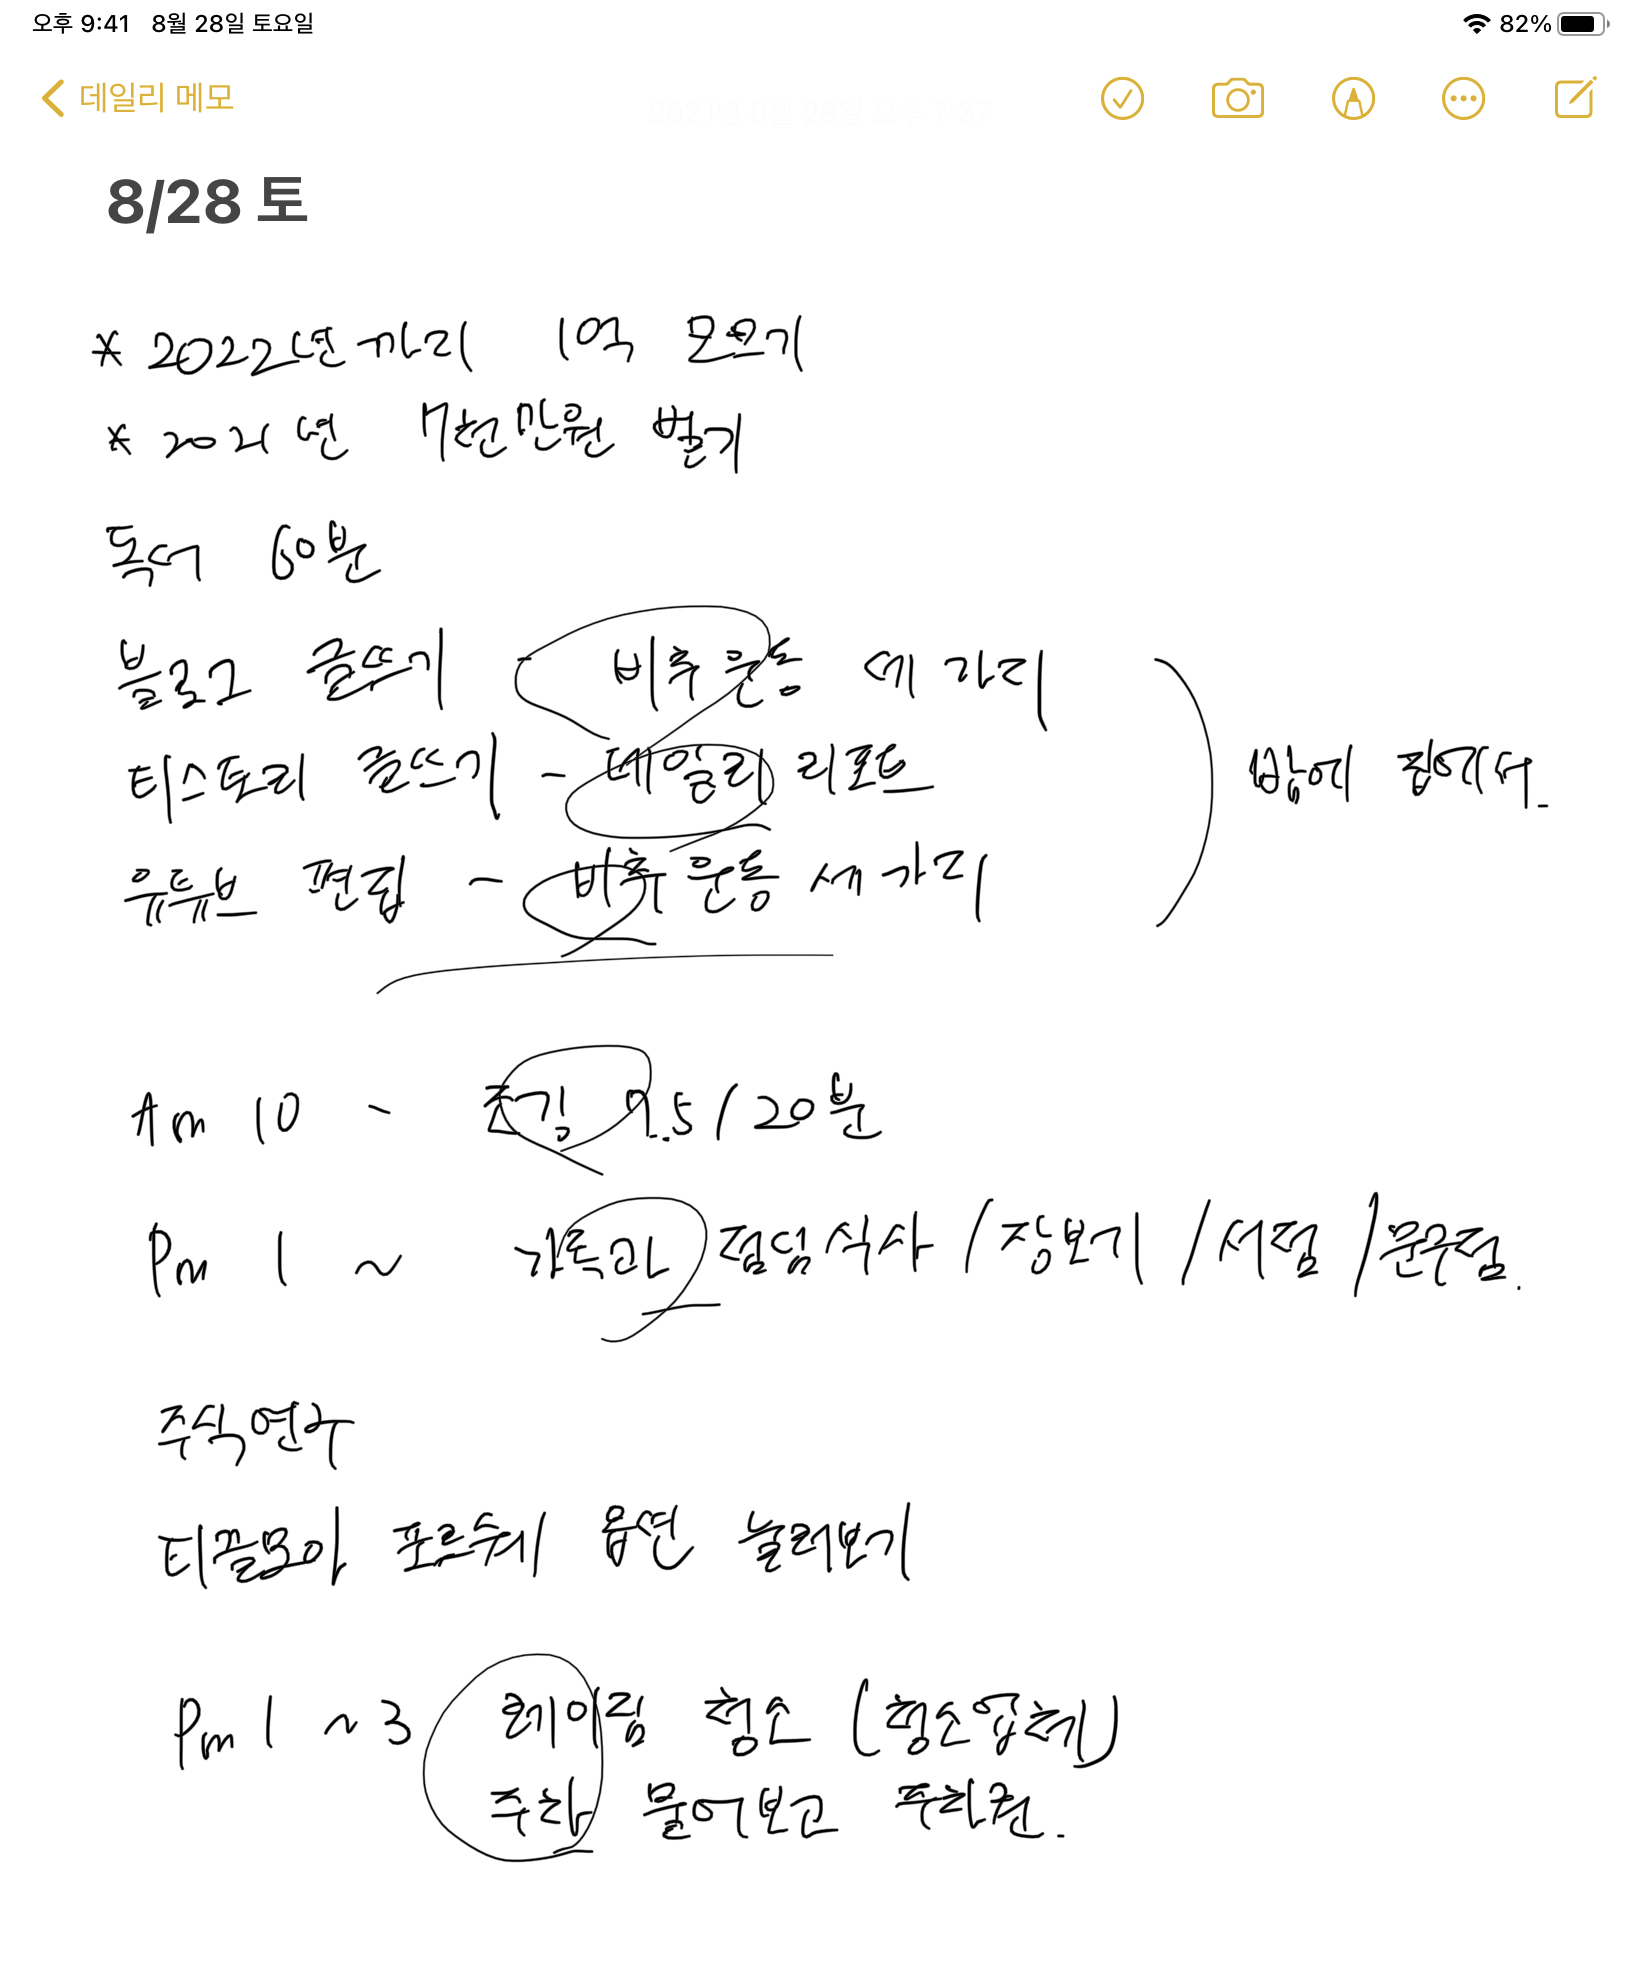 오후 9:41 8월 28일 토요일 82%
데일리 메모
8/28 토
* 2022년까지 1억 모으기
* 2021년 7천만원 벌기
독서 60분
블로그 글쓰기 - 비추운동 세가지
티스토리 글쓰기 - 데일리 리포트
밤에 집에서.
유튜브 편집 - 비추 운동 세가지
Am 10 - 조깅 7.5 / 20분
Pm 1 ~ 가족과 점심식사 / 장보기 / 서점 / 문구점.
주식연구
티끌모아 포르쉐 옵션 눌러보기
Pm 1 ~ 3 레이림 청소 (청소업체)
주차 물어보고 주차권.